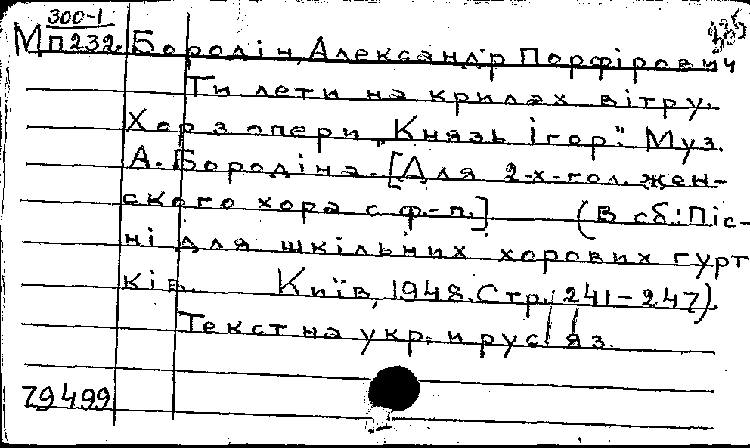 300-1
М П232. Бородін, Александр Порфірович
Ти лети на крилах вітру.
Хор з опери „Князь Ігор". Муз.
А. Бородіна. [Для 2-х-гол. жен-
ского хора с ф-п.] (В сб.: Піс-
ні для шкільних хорових гурт
ків. Київ, 1948. Стр. 241-247).
Текст на укр. и рус. яз.
79499